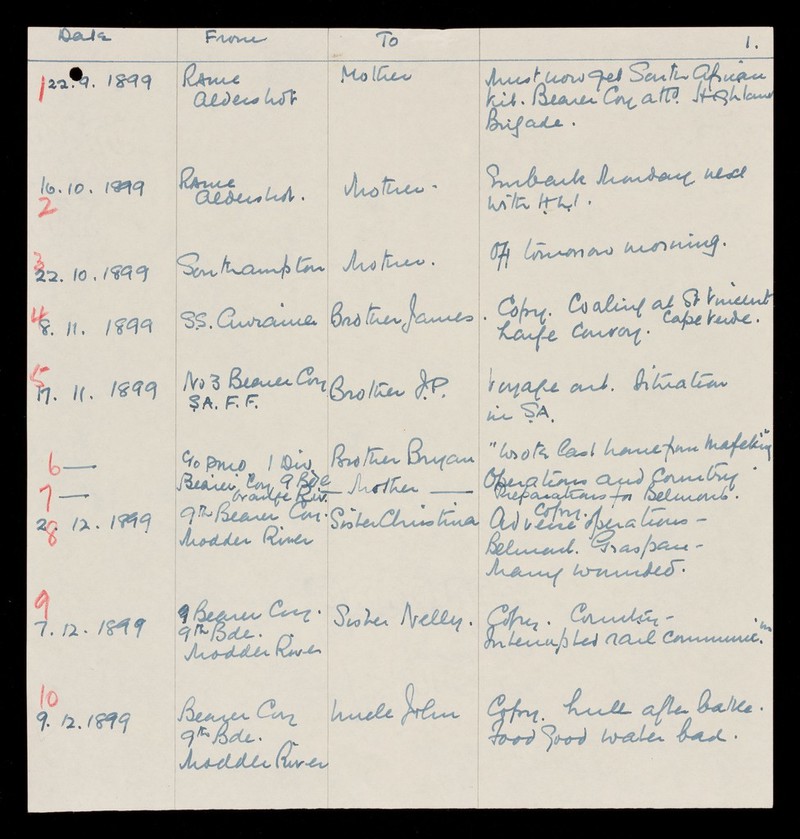 Date From To 1.
1 22.9.1899 RAMC Mother Must now get South African
Aldershot kit. Bearer Coy attd. Highland
Brigade.
16.10.1899 RAMC Mother. Embark Monday next
2 Aldershot. with H.L.I.
3 22.10.1899 Southampton Mother. Off tomorrow morning.
4 8.11.1899 SS. Brother James. Copy. Coaling at St Vincent
Large convoy. Cape Verde.
5 17.11.1899 No 3 Bearer Coy Brother J.P. Voyage out. Situation
S.A.F.F. in S.A.
6 — c/o PMO 1 Div. Brother Bryan "Wrote last home from Mafeking"
Bearer Coy 9 Bde Operations and Country.
7 — Orange Riv. — Mother — Preparations for Belmont.
8 2.12.1899 9th Bearer Coy. Sister Christina Copy. operations -
Modder River Belmont. Graspan -
Many wounded.
9 7.12.1899 9 Bearer Coy. Sister Nelly. Copy. Country -
9th Bde. Interrupted rail communic.
Modder River
10 9.12.1899 Bearer Coy Uncle John Copy. Lull after battle.
9th Bde. Food good water bad.
Modder River